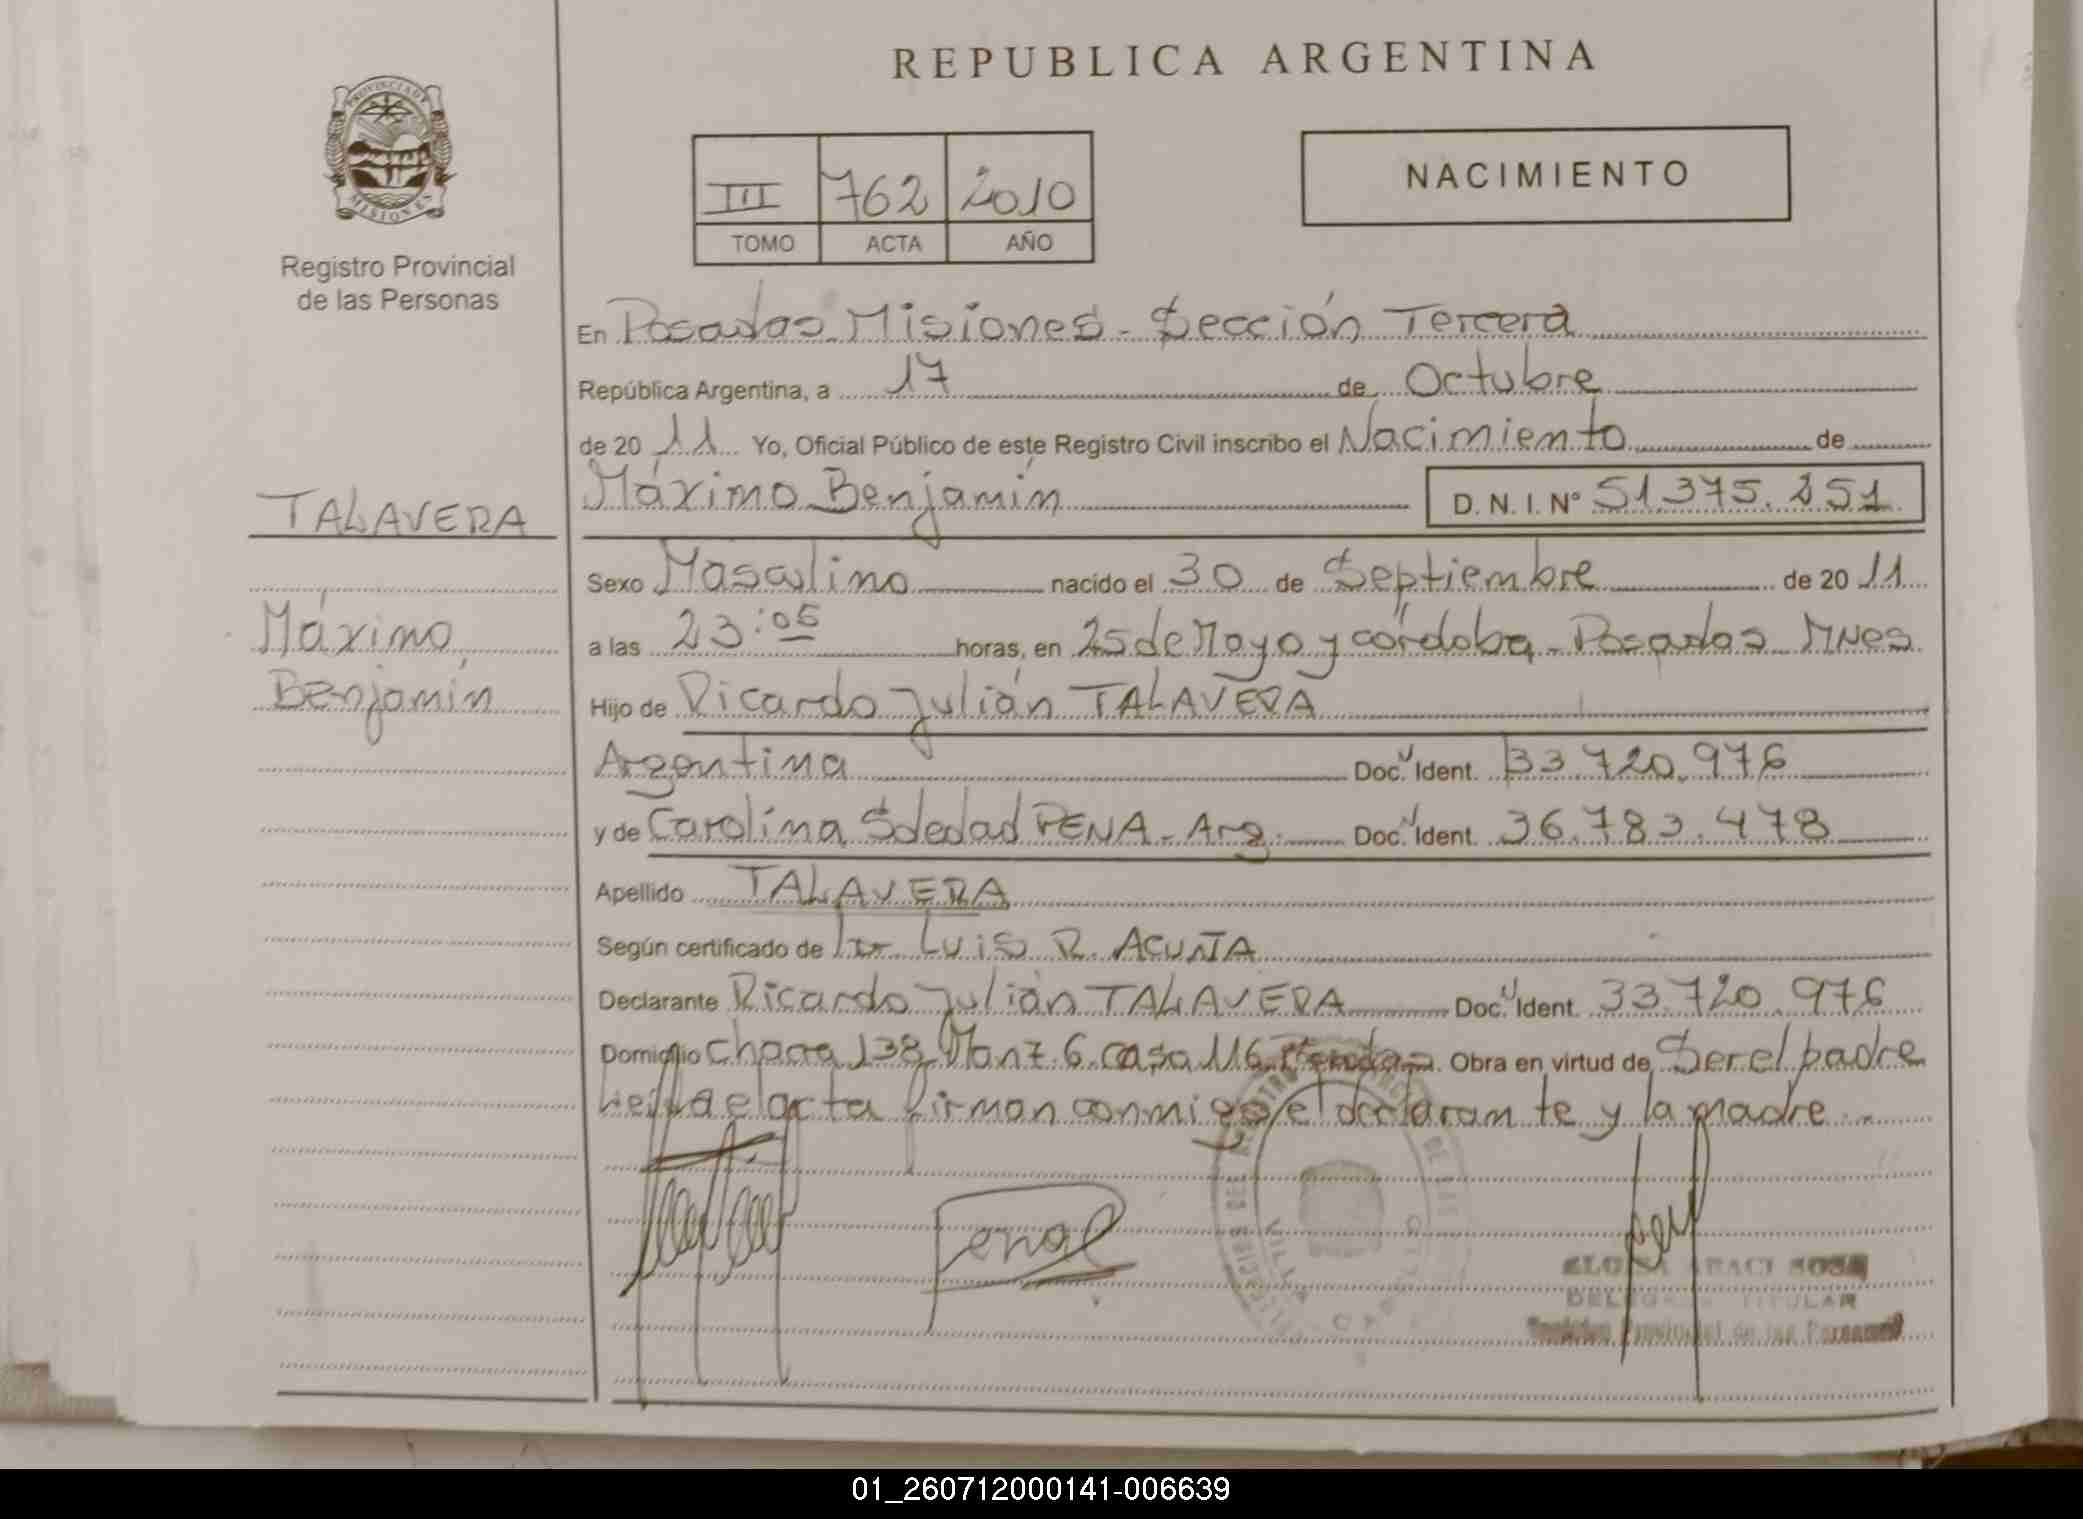 REPUBLICA ARGENTINA
PROVINCIA DE MISIONES
Registro Provincial
de las Personas
III 762 2010
TOMO ACTA AÑO
NACIMIENTO
En Posadas Misiones - Sección Tercera
República Argentina, a 17 de Octubre
de 20 11 Yo, Oficial Público de este Registro Civil inscribo el Nacimiento de
TALAVERA
Máximo Benjamín D. N. I. Nº 51.375.251
Sexo Masculino nacido el 30 de Septiembre de 20 11
Máximo
Benjamín
a las 23:05 horas, en 25 de Mayo y córdoba - Posadas Mnes
Hijo de Ricardo Julián TALAVERA
Argentina Doc. Ident. 33.720.976
y de Carolina Soledad PENA - Arg. Doc. Ident. 36.783.478
Apellido TALAVERA
Según certificado de Dr Luis R. ACUÑA
Declarante Ricardo Julián TALAVERA Doc. Ident. 33.720.976
Domicilio Chacra 138 Manz. 6 casa 116 Posadas Obra en virtud de Ser el padre
Leída el acta firman conmigo el declarante y la madre
Pena C
ARACI SOSA
TITULAR
Provincial de las Personas
VILLA CABELLO
01_260712000141-006639